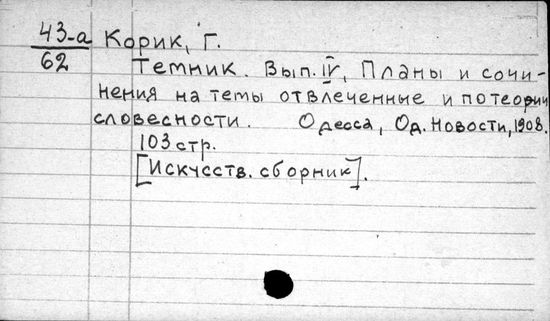 43-а Корик, Г.
62
Темник. Вып. IV, Планы и сочи-
нения на темы отвлеченные и по теории
словесности. Одесса, Од. Новости, 1908.
103 стр.
[Искусств. сборник].